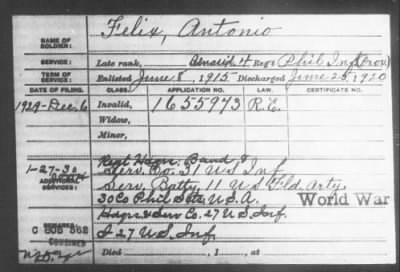 NAME OF SOLDIER: Felix, Antonio
SERVICE: Late rank, Regt Phil Inf (Prov)
TERM OF SERVICE: Enlisted June 8, 1915 Discharged June 25, 1920
DATE OF FILING. CLASS. APPLICATION NO. LAW. CERTIFICATE NO.
1929-Dec. 6 Invalid, 1655973 R.E.
Widow,
Minor,
Hqrs. Band &
1-27-30 Serv. Co. 31 U S Inf
ADDITIONAL SERVICES: Serv. Batty 11 U.S. Fld. Arty.
30 Co Phil Scts U.S.A. World War
Hdqrs & Serv Co. 27 U.S. Inf.
REMARKS: I 27 U.S. Inf.
C 505 562
COMBINED
Died , 1 , at